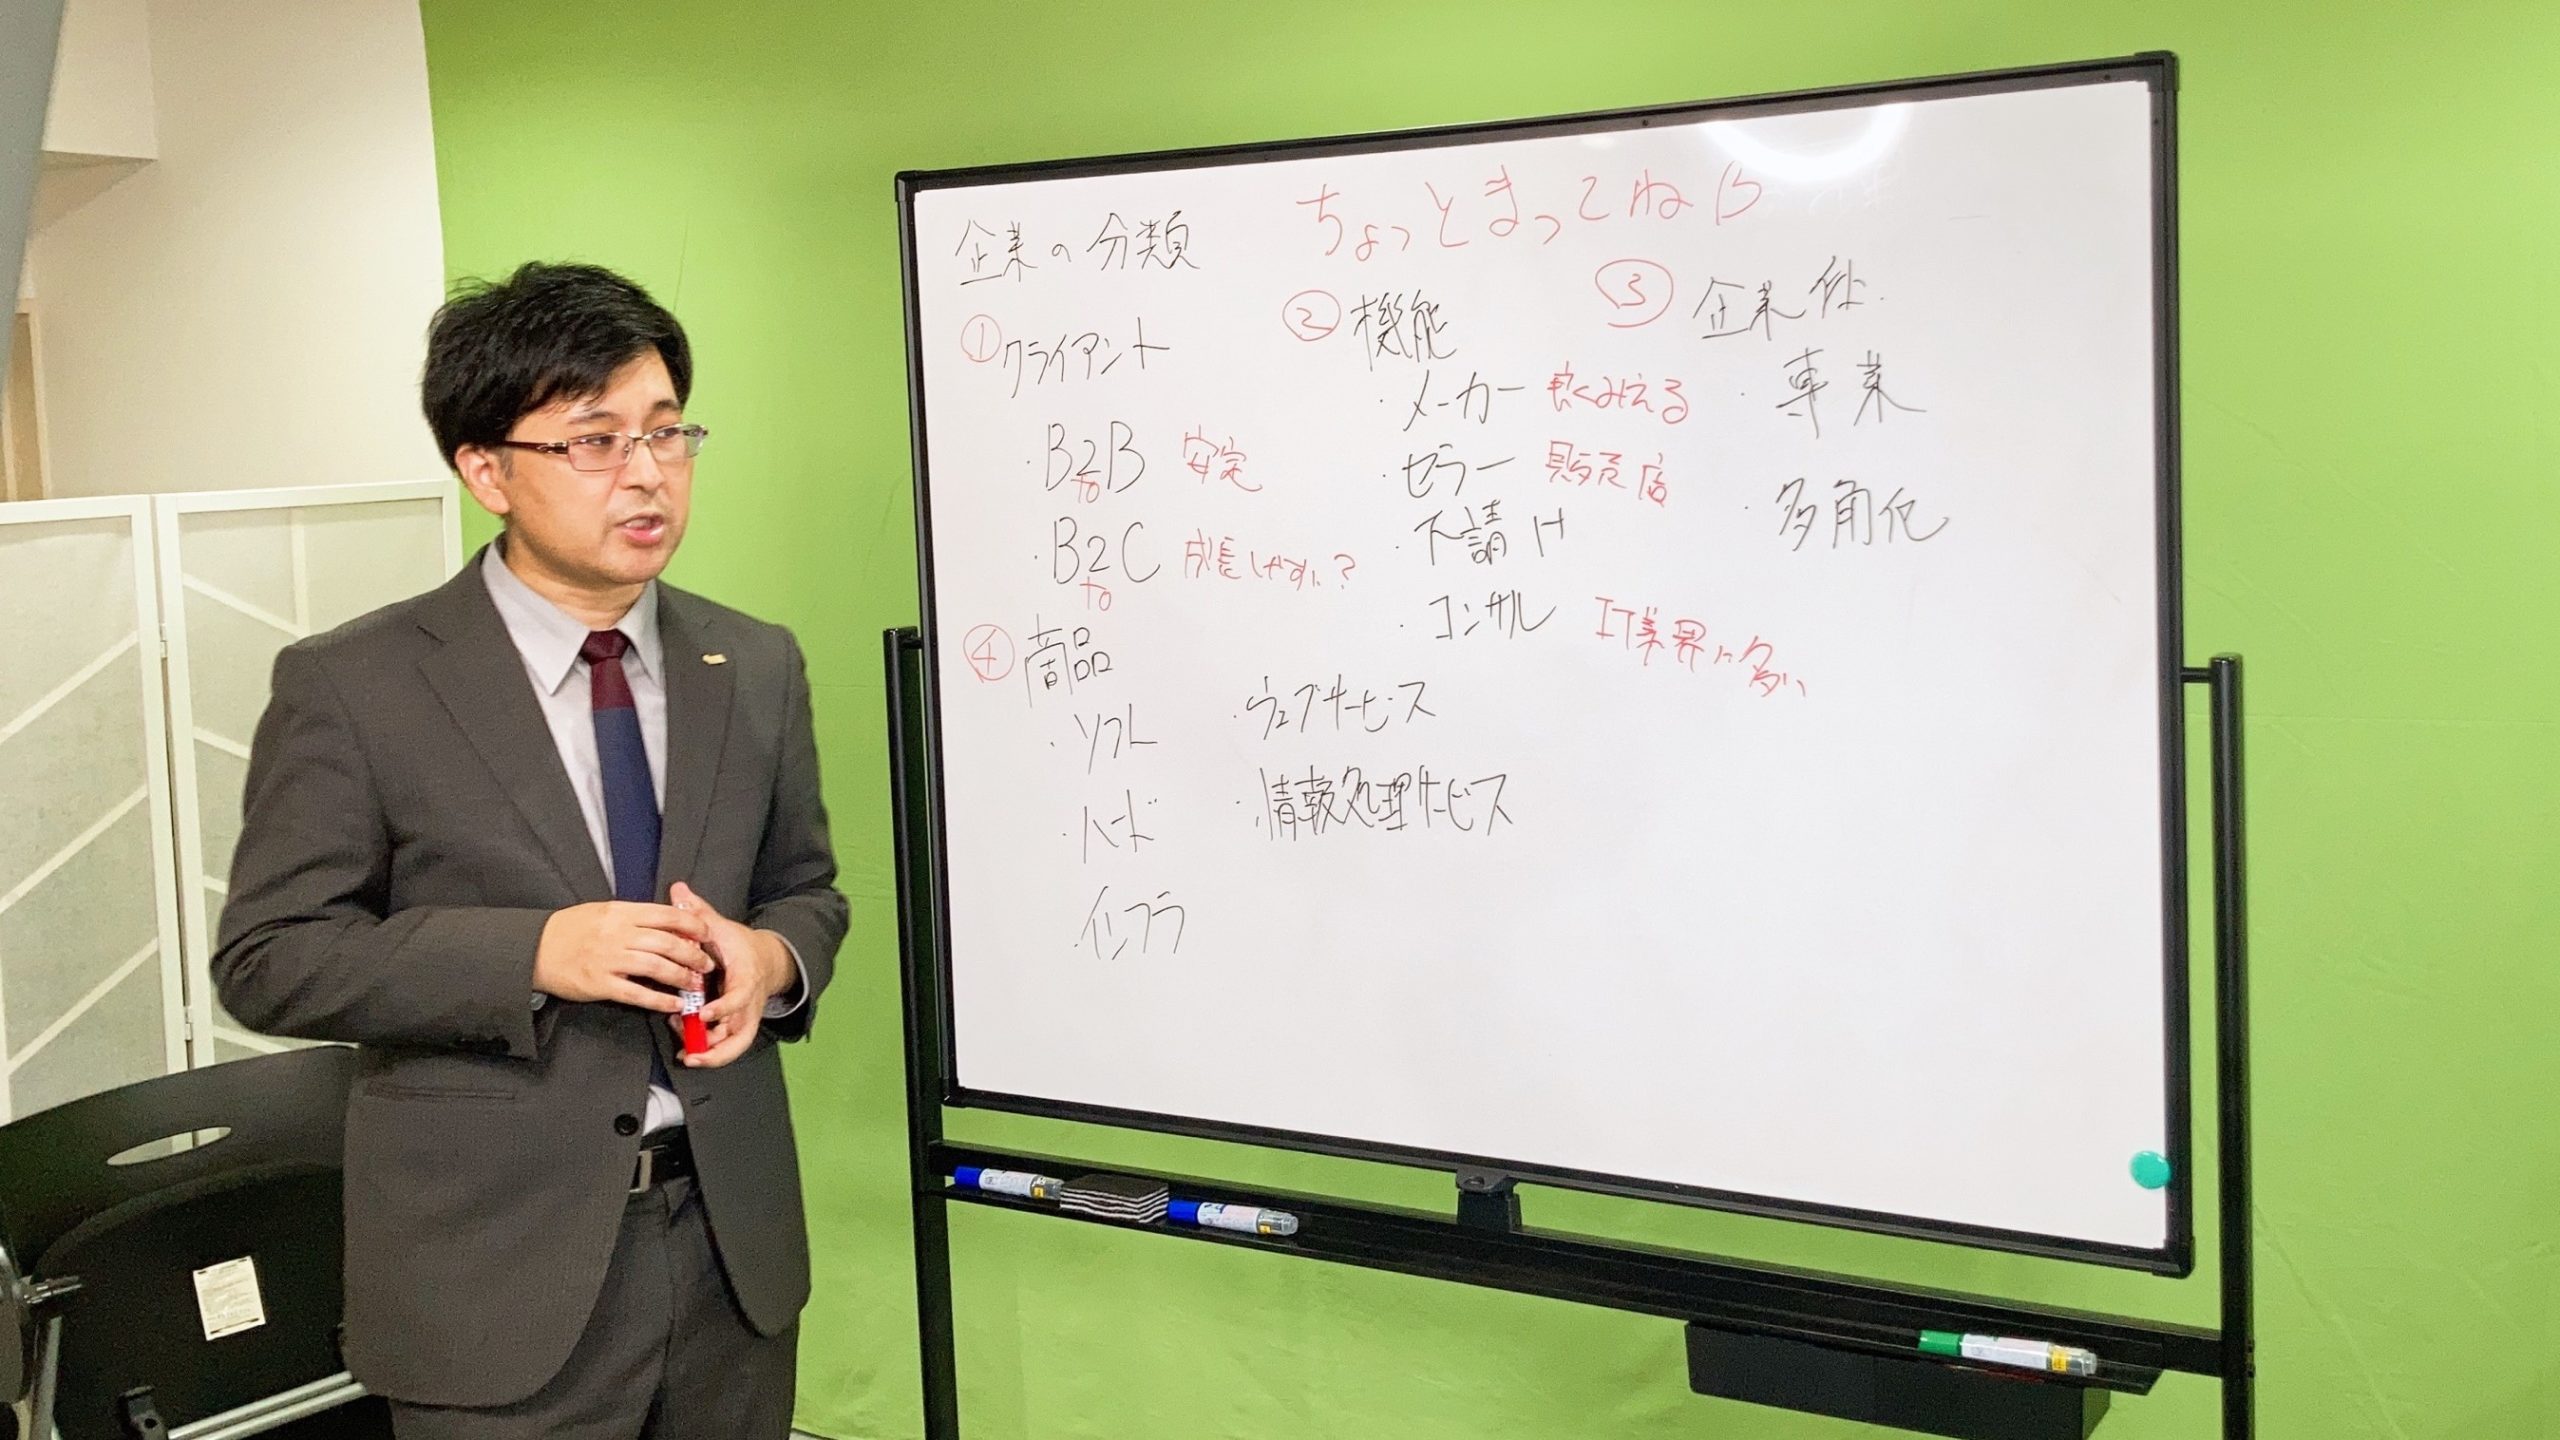 企業の分類
ちょっとまってねB
① クライアント
・B2B 安定
to
・B2C 成長しやすい?
to
② 機能
・メーカー 良くみえる
・セラー 販売店
・下請け
・コンサル IT業界に多い
③ 企業体
・専業
・多角化
④ 商品
・ソフト
・ハード
・インフラ
・ウェブサービス
・情報処理サービス